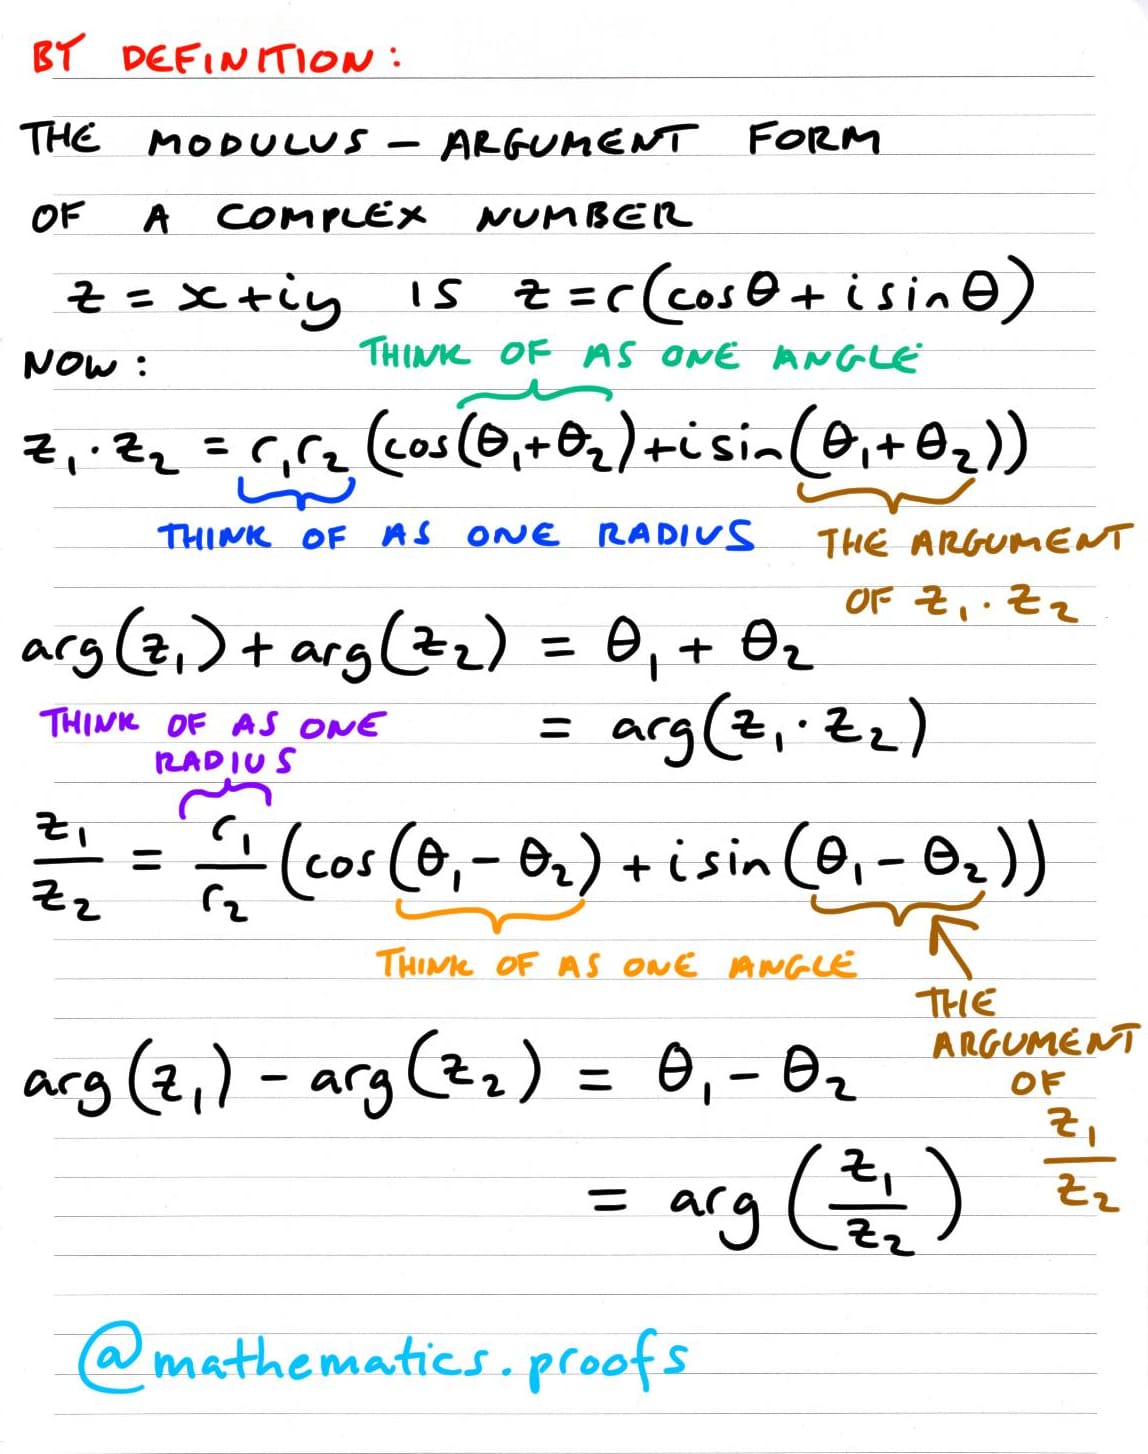 BY DEFINITION:
THE MODULUS - ARGUMENT FORM
OF A COMPLEX NUMBER
z = x+iy IS z = r(cosθ + i sinθ)
NOW:
THINK OF AS ONE ANGLE
z₁·z₂ = r₁r₂ (cos(θ₁+θ₂)+i sin(θ₁+θ₂))
THINK OF AS ONE RADIUS
THE ARGUMENT
OF z₁·z₂
arg(z₁)+arg(z₂) = θ₁ + θ₂
= arg(z₁·z₂)
THINK OF AS ONE
RADIUS
z₁/z₂ = r₁/r₂ (cos(θ₁-θ₂) + i sin(θ₁-θ₂))
THINK OF AS ONE ANGLE
THE
ARGUMENT
OF
z₁/z₂
arg(z₁) - arg(z₂) = θ₁ - θ₂
= arg(z₁/z₂)
@mathematics.proofs